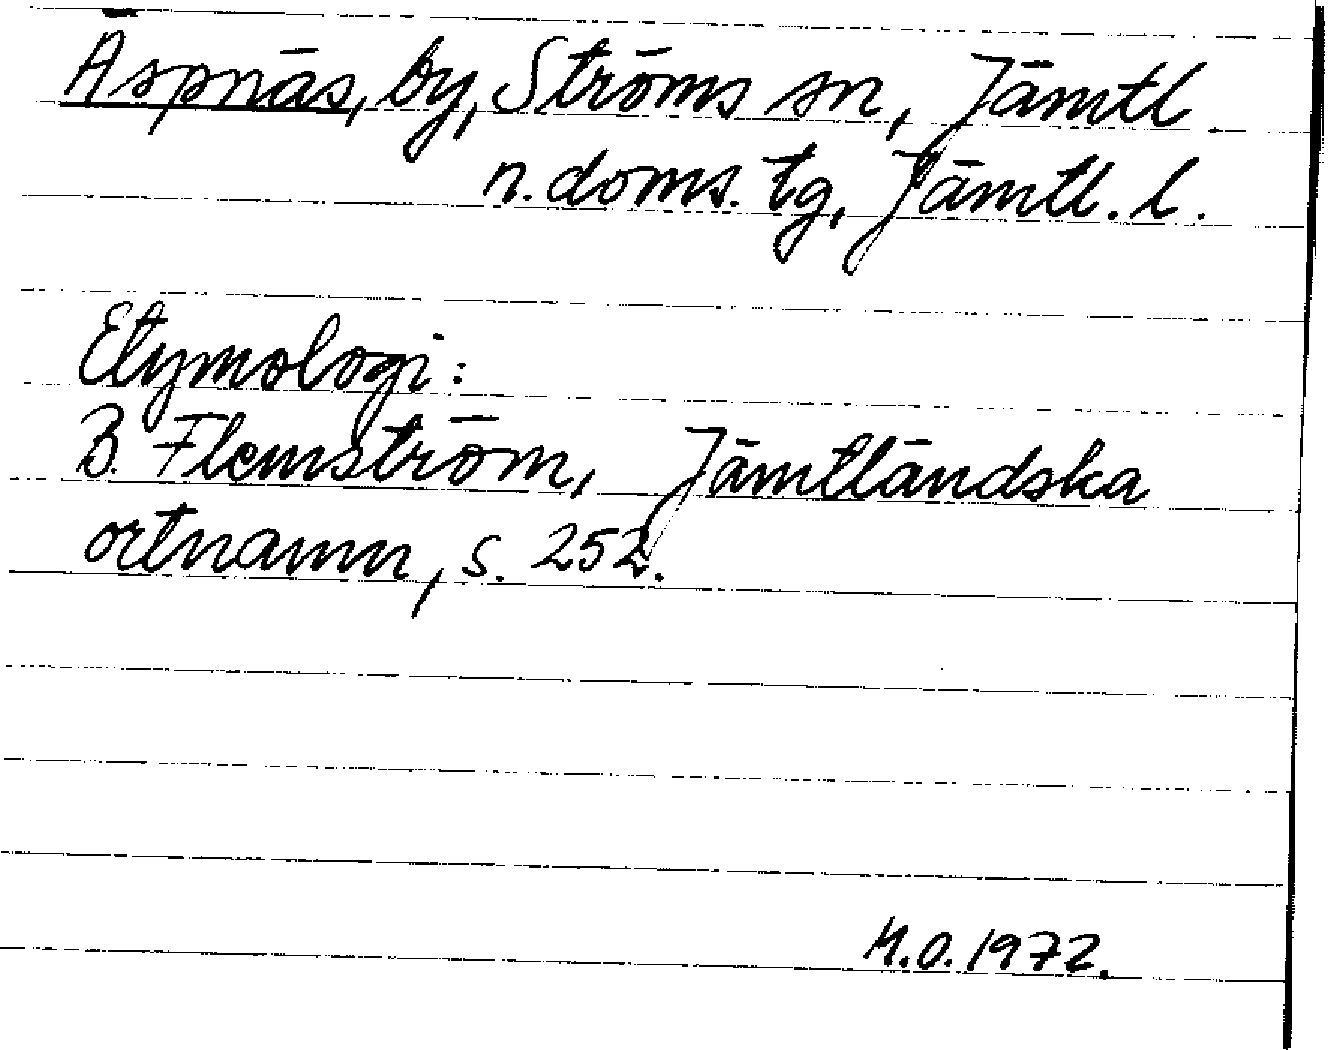 Äspnäs, by, Ströms sn, Jämtl
n. doms. tg, Jämtl. l.
Etymologi:
B. Flemström, Jämtländska
ortnamn, s. 252.
M.O. 1972.